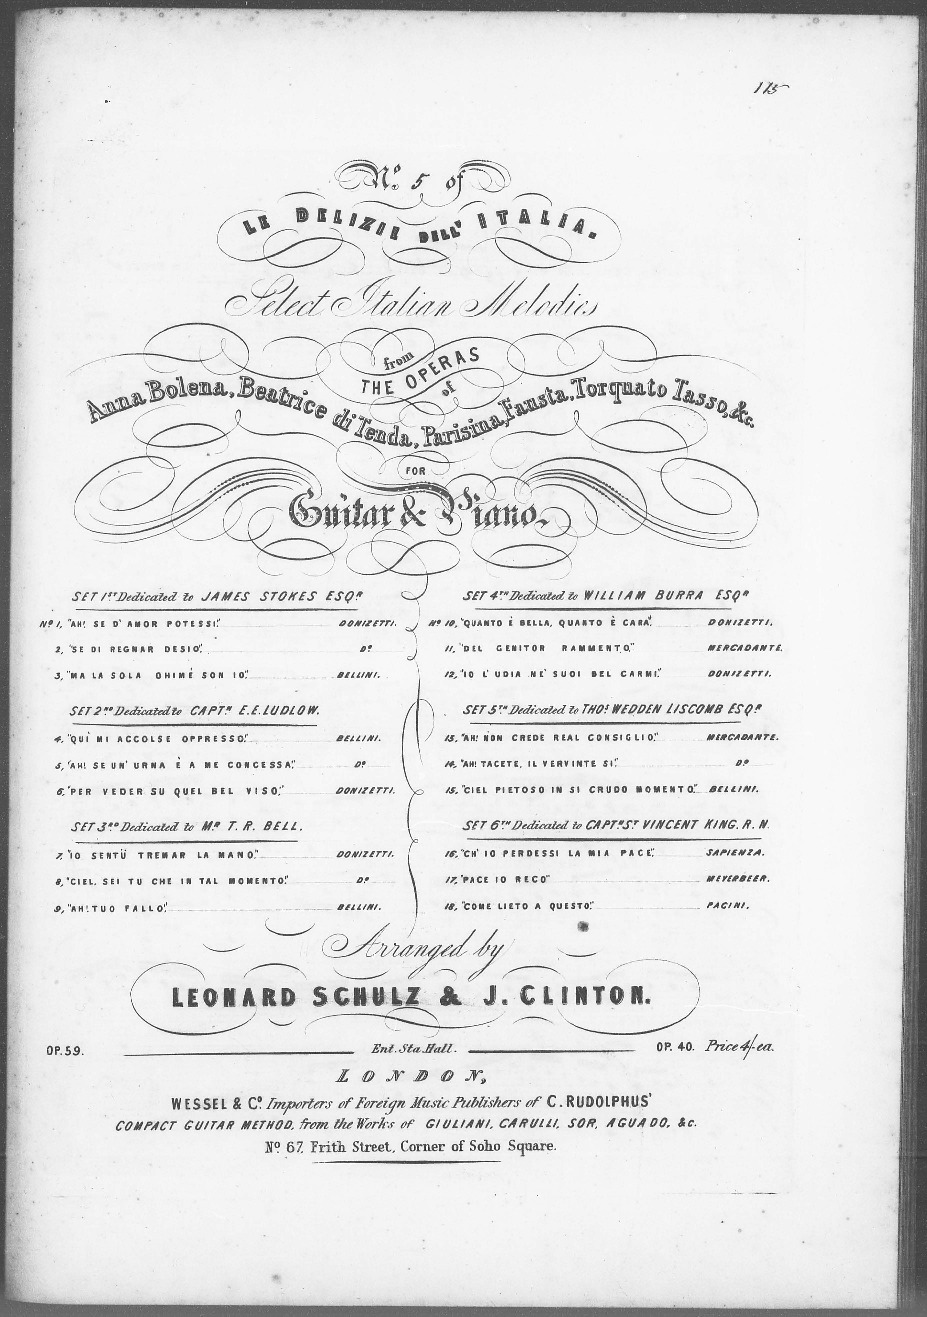 175
No. 5 of
LE DELIZIE DELL' ITALIA.
Select Italian Melodies
from
THE OPERAS
OF
Anna Bolena, Beatrice di Tenda, Parisina, Fausta, Torquato Tasso, &c.
FOR
Guitar & Piano.
SET 1ST Dedicated to JAMES STOKES ESQR
No 1, "AH! SE D' AMOR POTESSI." DONIZETTI.
2, "SE DI REGNAR DESIO." Do
3, "MA LA SOLA OHIMÉ SON IO." BELLINI.
SET 2ND Dedicated to CAPTN E.E. LUDLOW.
4, "QUI MI ACCOLSE OPPRESSO." BELLINI.
5, "AH! SE UN' URNA È A ME CONCESSA." Do
6, "PER VEDER SU QUEL BEL VISO." DONIZETTI.
SET 3RD Dedicated to MR T. R. BELL.
7, "IO SENTÜ TREMAR LA MANO." DONIZETTI.
8, "CIEL, SEI TU CHE IN TAL MOMENTO." Do
9, "AH! TUO FALLO." BELLINI.
SET 4TH Dedicated to WILLIAM BURRA ESQR
No 10, "QUANTO È BELLA, QUANTO È CARA." DONIZETTI.
11, "DEL GENITOR RAMMENTO." MERCADANTE.
12, "IO L' UDIA NE' SUOI BEL CARMI." DONIZETTI.
SET 5TH Dedicated to THOS WEDDEN LISCOMB ESQR
13, "AH! NON CREDE REAL CONSIGLIO." MERCADANTE.
14, "AH! TACETE, IL VERVINTE SI." Do
15, "CIEL PIETOSO IN SI CRUDO MOMENTO." BELLINI.
SET 6TH Dedicated to CAPTN ST VINCENT KING, R. N.
16, "CH' IO PERDESSI LA MIA PACE." SAPIENZA.
17, "PACE IO RECO" MEYERBEER.
18, "COME LIETO A QUESTO." PACINI.
Arranged by
LEONARD SCHULZ & J. CLINTON.
OP. 59. Ent. Sta. Hall. OP. 40. Price 4/- ea.
LONDON,
WESSEL & Co. Importers of Foreign Music Publishers of C. RUDOLPHUS'
COMPACT GUITAR METHOD, from the Works of GIULIANI, CARULLI, SOR, AGUADO, &c.
No 67, Frith Street, Corner of Soho Square.